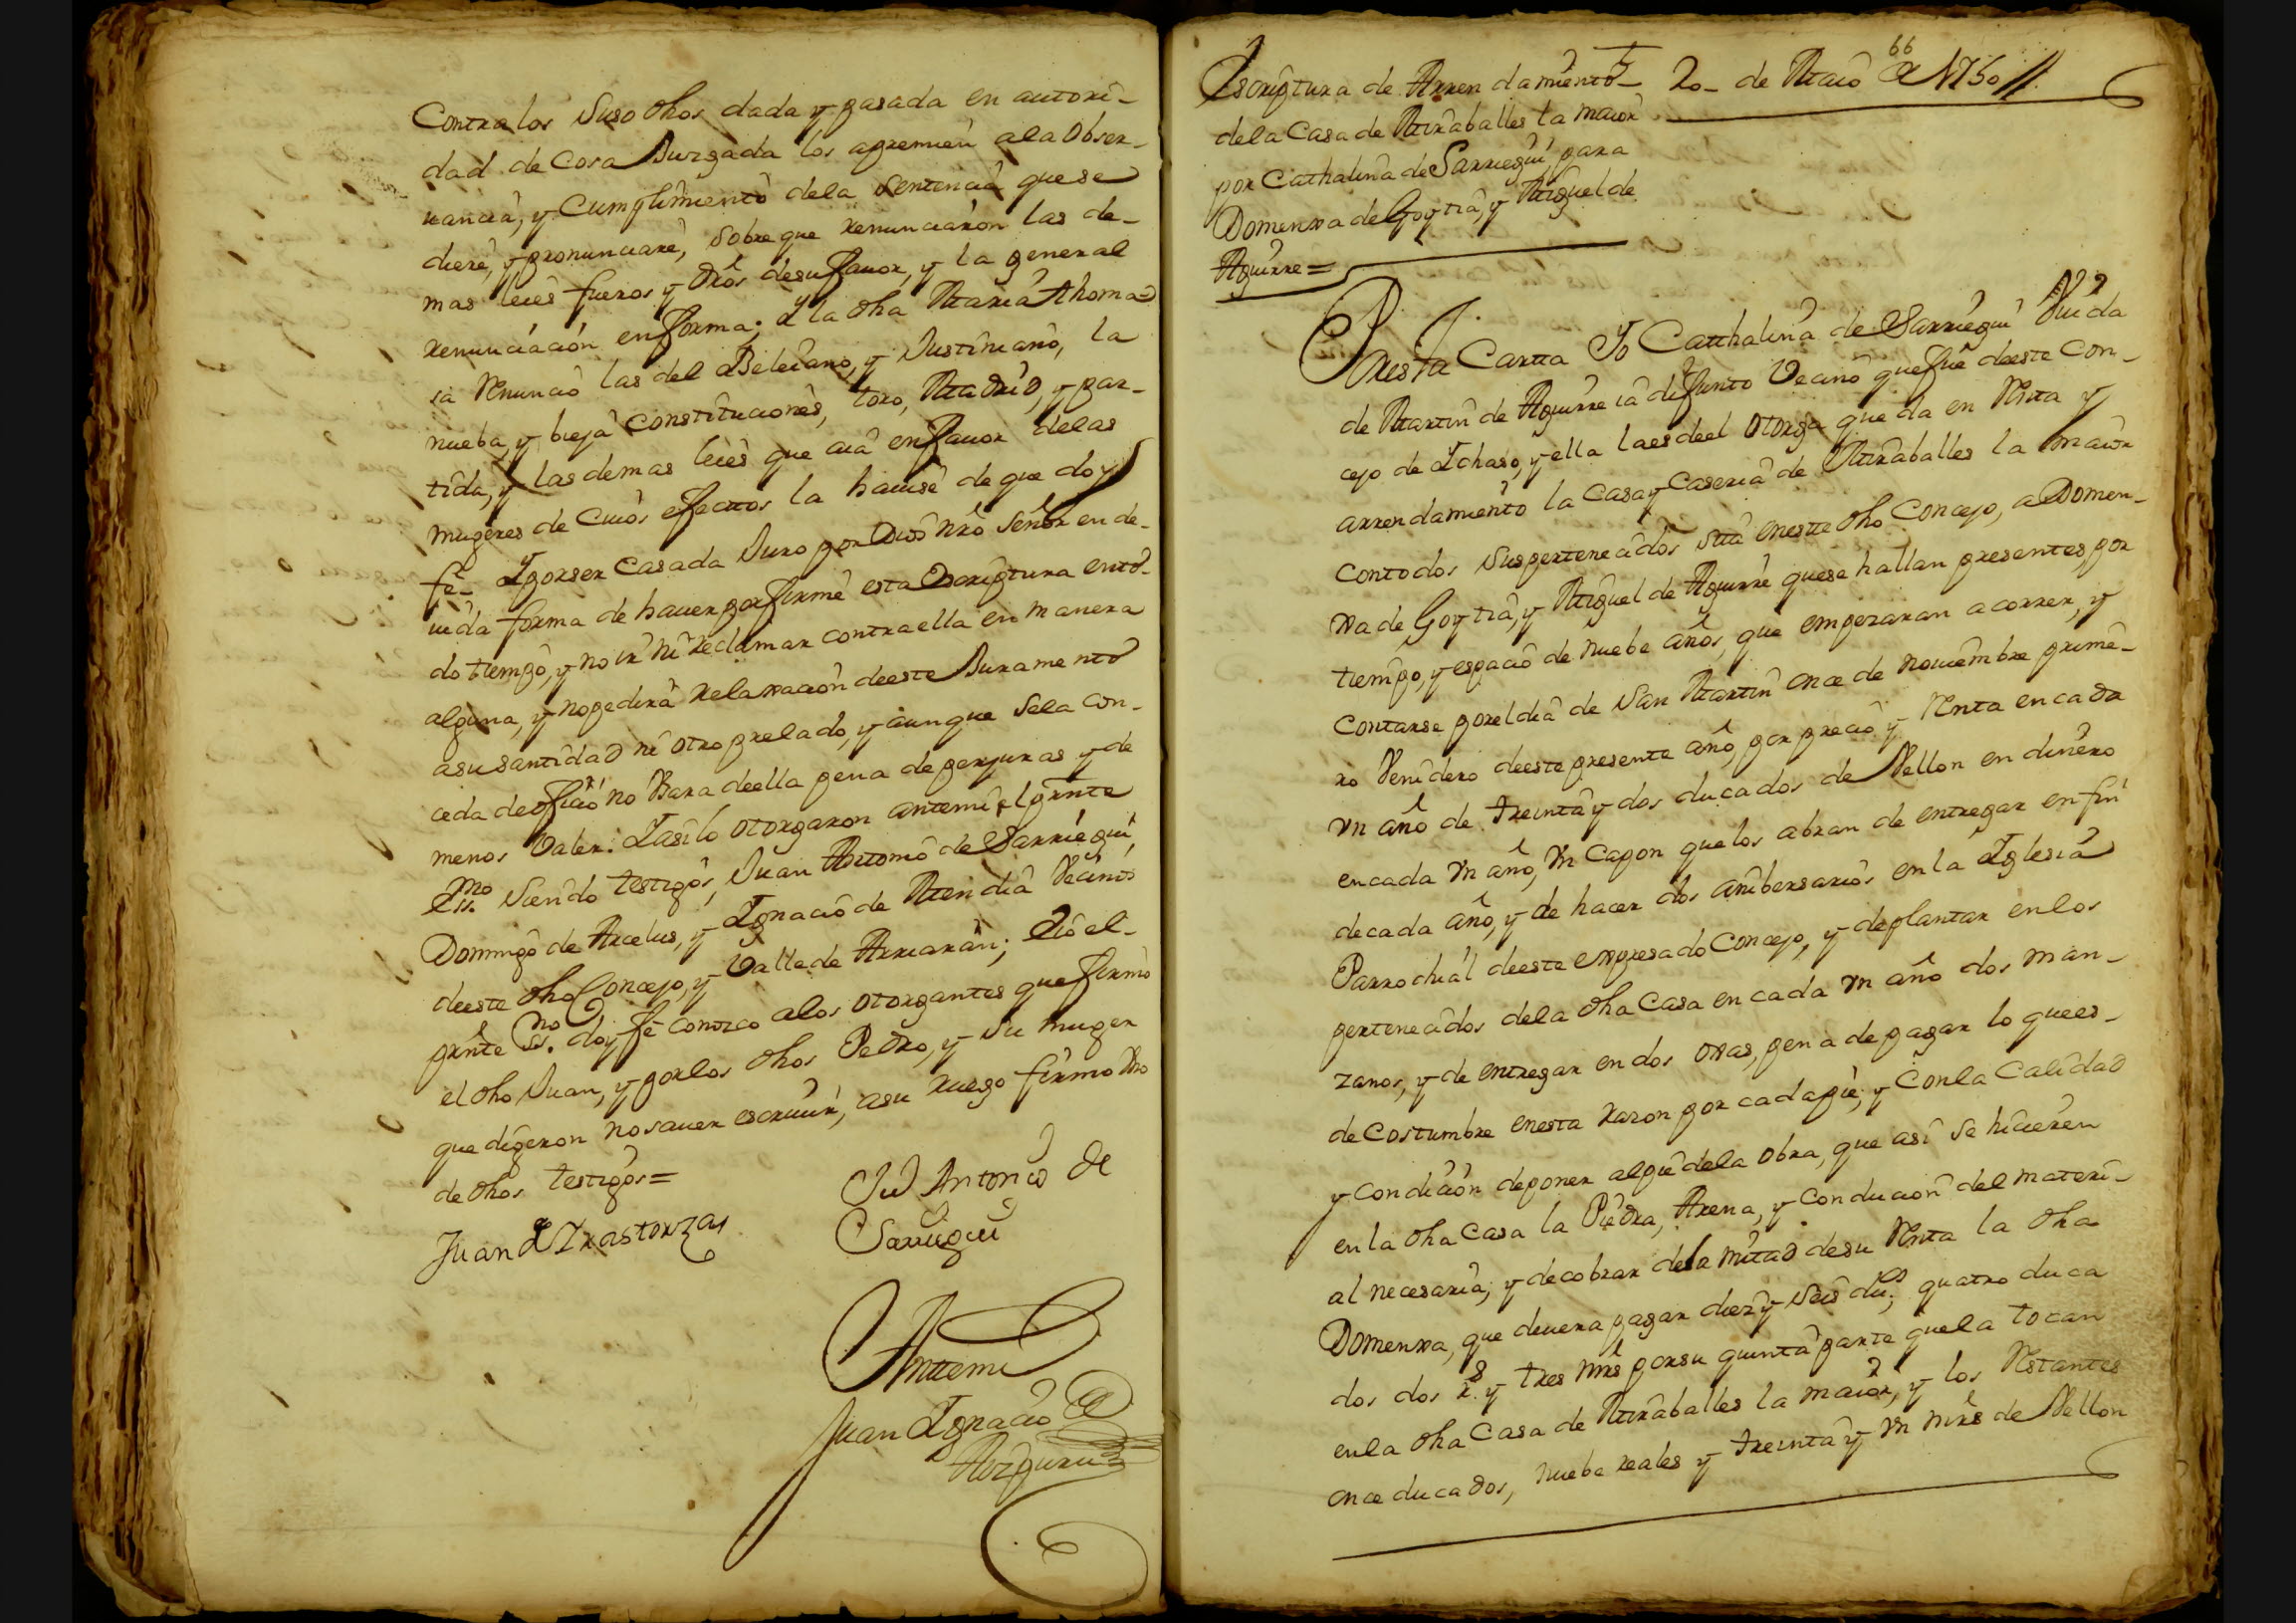 Contra los suso dhos dada y pasada en autori-
dad de cosa Juzgada los apremien a la obser-
vancia, y Cumplimiento de la sentencia que se
diere, y pronunciare, sobre que renunciaron las de-
mas leies fueros y dros de su fauor, y la general
renunciacion en forma; Y la dha Maria Thoma-
sa Renunció las del Beleiano, y Justiniano, la
nueba, y bieja constituciones, toro, Madrid, y par-
tida, y las demas leies que aia en fauor de las
mugeres de Cuios efectos la hauisé de que doy
fe- Y por ser Casada Juro por Dios nro señor en de-
uida forma de hauer por firme esta Escriptura en to-
do tiempo, y no ir ni reclamar contra ella en manera
alguna, y no pedirá relaxacion de este Juramento
a su santidad ni otro prelado, y aunque se la con-
ceda de oficio no Usara de ella pena de perjuras y de
menos Valer: Y asi lo otorgaron ante mi el prnte
essno siendo testigos, Juan Antonio de Sarriegui,
Domingo de Arcelus, y Ignacio de Mendia Vecinos
de este dho Concejo, y Valle de Arriaran; E io el
prnte ssno doy fe conozco a los otorgantes que firmó
el dho Juan, y por los dhos Pedro, y su muger
que digeron no sauer escriuir, a su ruego firmo Uno
de dhos testigos=
Juan de Irastorza
Ju Antonio de
Sarriegui
Antemi
Juan Ignacio
Aizpuru
66
Escriptura de Arrendamiento 20 de Maio de 1750 //
de la Casa de Miraballes la maior
por Cathalina de Sarriegui, para
Domenxa de Goytia, y Miguel de
Aguirre=
Por esta Cartta Yo Catthalina de Sarriegui Viuda
de Martin de Aguirre ia difunto Vecino que fue de este con-
cejo de Ychaso, y ella la es de el otorga que da en Renta y
arrendamiento la Casa y Caseria de Miraballes la maior
con todos sus pertenecidos sitta en estte dho Concejo, a Domen-
xa de Goytia, y Miguel de Aguirre que se hallan presentes, por
tiempo, y espacio de nuebe años, que empezaran a correr, y
Contarse por el dia de San Martin once de nouiembre prime-
ro Venidero de este presente año, por precio y Renta en cada
Un año de treinta y dos ducados de Vellon en dinero
en cada Un año, Un Capon que los abran de entregar en fin
de cada año, y de hacer dos anibersarios en la Yglesia
Parrochial de este expresado Concejo, y de plantar en los
pertenecidos de la dha Casa en cada Un año dos man-
zanos, y de entregar en dos oxas, pena de pagar lo que es
de Costumbre en esta razon por cada pie; y con la Calidad
y condicion de poner al pie de la obra, que asi se hicieren
en la dha Casa la Piedra, Arena, y Conducion del materi-
al necesaria; y de cobrar de la mitad de su Renta la dha
Domenxa, que deuera pagar diez y seis dus; quatro duca
dos dos rs y tres mrs por su quinta parte que la tocan
en la dha Casa de Miraballes la maior, y los Restantes
once ducados, nuebe reales y treinta y Un mrs de Vellon